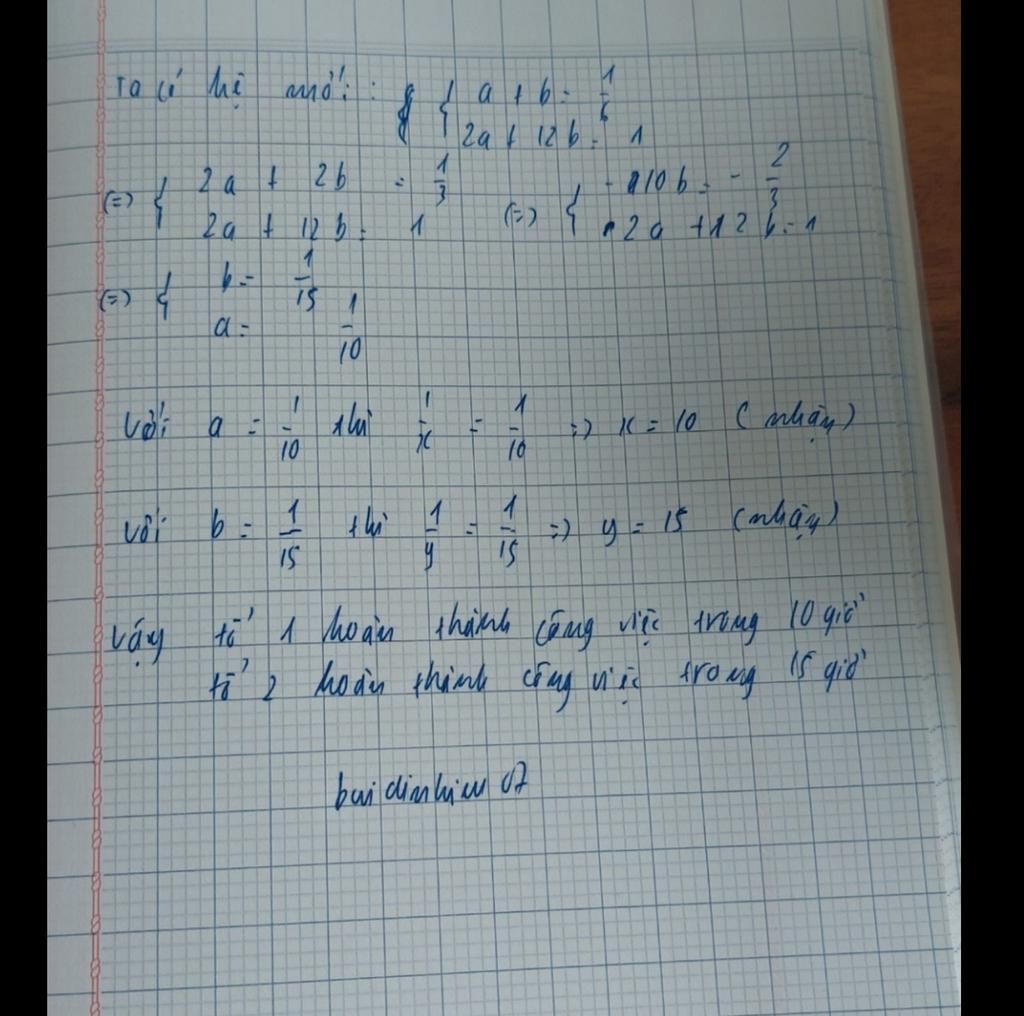 Ta có hệ mới: { a + b = 1/6
2a + 12b = 1
(=) { 2a + 2b = 1/3 (=) { -10b = -2/3
2a + 12b = 1 2a + 12b = 1
(=) { b = 1/15
a = 1/10
Với a = 1/10 thì 1/x = 1/10 => x = 10 (nhận)
Với b = 1/15 thì 1/y = 1/15 => y = 15 (nhận)
Vậy tổ 1 hoàn thành công việc trong 10 giờ
tổ 2 hoàn thành công việc trong 15 giờ
buidinhieu 07